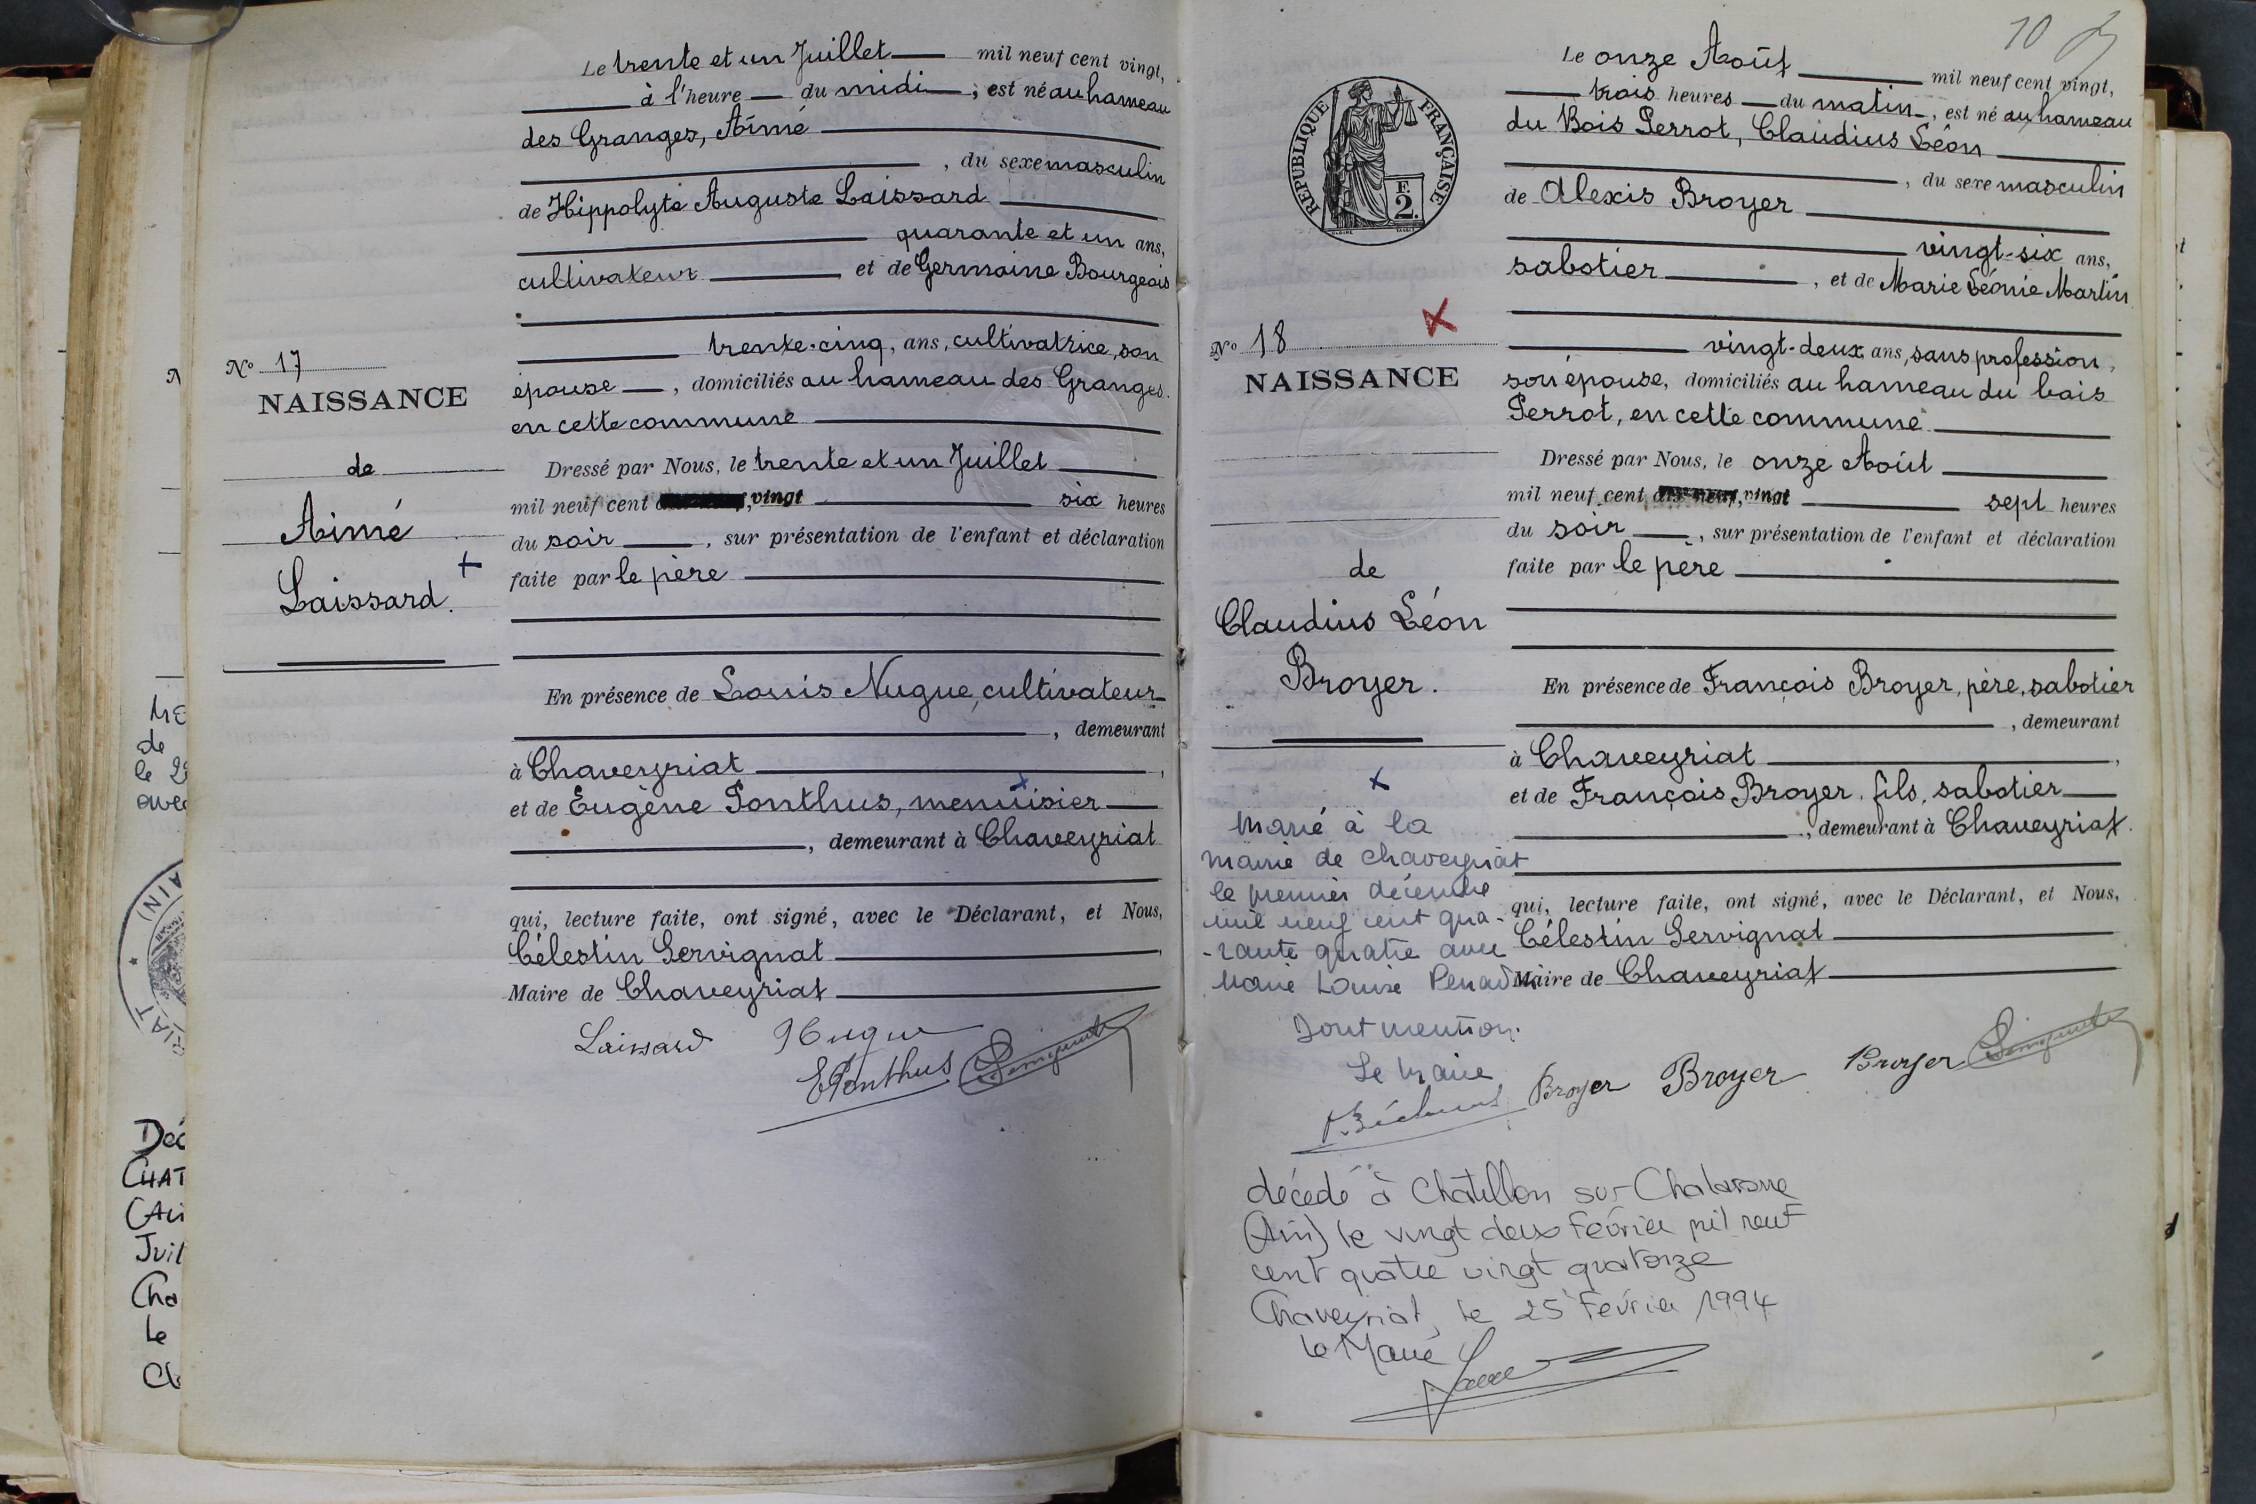 Le trente et un Juillet mil neuf cent vingt,
à l'heure du midi, est né au hameau
des Granges, Aimé
, du sexe masculin
de Hippolyte Auguste Laissard
quarante et un ans,
cultivateur et de Germaine Bourgeois
trente-cinq, ans, cultivatrice, son
épouse, domiciliés au hameau des Granges.
en cette commune
Dressé par Nous, le trente et un Juillet
mil neuf cent vingt six heures
du soir, sur présentation de l'enfant et déclaration
faite par le père
En présence de Louis Nugue, cultivateur
, demeurant
à Chaveyriat,
et de Eugène Ponthus, menuisier
, demeurant à Chaveyriat
qui, lecture faite, ont signé, avec le Déclarant, et Nous,
Célestin Servignat
Maire de Chaveyriat
Laissard Nugue
EPonthus
No 17
NAISSANCE
de
Aimé
Laissard.
10
Le onze Août mil neuf cent vingt,
trois heures du matin, est né au hameau
du Bois Perrot, Claudius Léon
, du sexe masculin
de Alexis Broyer
vingt-six ans,
sabotier, et de Marie Léonie Martin
vingt-deux ans, sans profession,
son épouse, domiciliés au hameau du bois
Perrot, en cette commune
Dressé par Nous, le onze Août
mil neuf cent dix-neuf, vingt sept heures
du soir, sur présentation de l'enfant et déclaration
faite par le père
En présence de François Broyer, père, sabotier
, demeurant
à Chaveyriat,
et de François Broyer, fils, sabotier
, demeurant à Chaveyriat.
qui, lecture faite, ont signé, avec le Déclarant, et Nous,
Célestin Servignat
Maire de Chaveyriat
Broyer Broyer Broyer
RÉPUBLIQUE FRANÇAISE
F.
2.
No 18
NAISSANCE
de
Claudius Léon
Broyer.
Marié à la
mairie de Chaveyriat
le premier décembre
mil neuf cent qua-
-rante quatre avec
Marie Louise
Dont mention.
Le Maire
décédé à Châtillon sur Chalaronne
(Ain) le vingt deux Février mil neuf
cent quatre vingt quatorze
Chaveyriat, le 25 Février 1994
le Maire
de
le 2
avec
AIN)
IAT
Déc
CHAT
(Ai
Juil
Cha
le